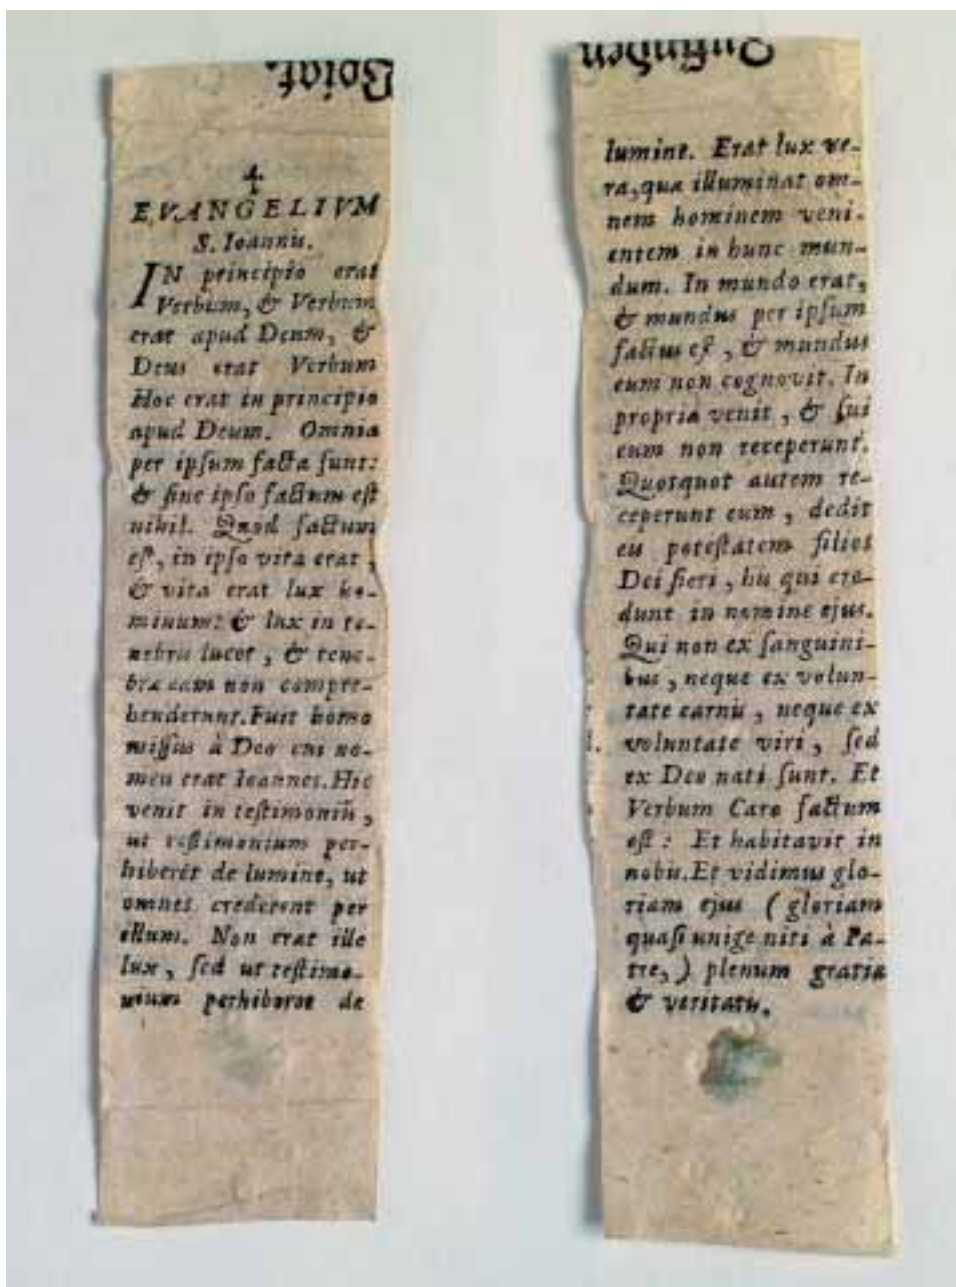 Boiat.
EVANGELIVM
S. Ioannis.
IN principio erat
Verbum, & Verbum
erat apud Deum, &
Deus erat Verbum
Hoc erat in principio
apud Deum. Omnia
per ipſum facta ſunt:
& ſine ipſo factum eſt
nihil. Quod factum
eſt, in ipſo vita erat,
& vita erat lux ho-
minum: & lux in te-
nebris lucet, & tene-
bræ eam non compre-
henderunt. Fuit homo
miſſus à Deo cui no-
men erat Ioannes. Hic
venit in teſtimoniū,
ut teſtimonium per-
hiberet de lumine, ut
omnes crederent per
illum. Non erat ille
lux, ſed ut teſtimo-
nium perhiberet de
lumine. Erat lux ve-
ra, quæ illuminat om-
nem hominem veni-
entem in hunc mun-
dum. In mundo erat,
& mundus per ipſum
factus eſt, & mundus
eum non cognovit. In
propria venit, & ſui
eum non receperunt.
Quotquot autem re-
ceperunt eum, dedit
eis poteſtatem filios
Dei fieri, his qui cre-
dunt in nomine ejus.
Qui non ex ſanguini-
bus, neque ex volun-
tate carnis, neque ex
voluntate viri, ſed
ex Deo nati ſunt. Et
Verbum Caro factum
eſt: Et habitavit in
nobis. Et vidimus glo-
riam ejus (gloriam
quaſi unige niti à Pa-
tre,) plenum gratia
& veritatis.